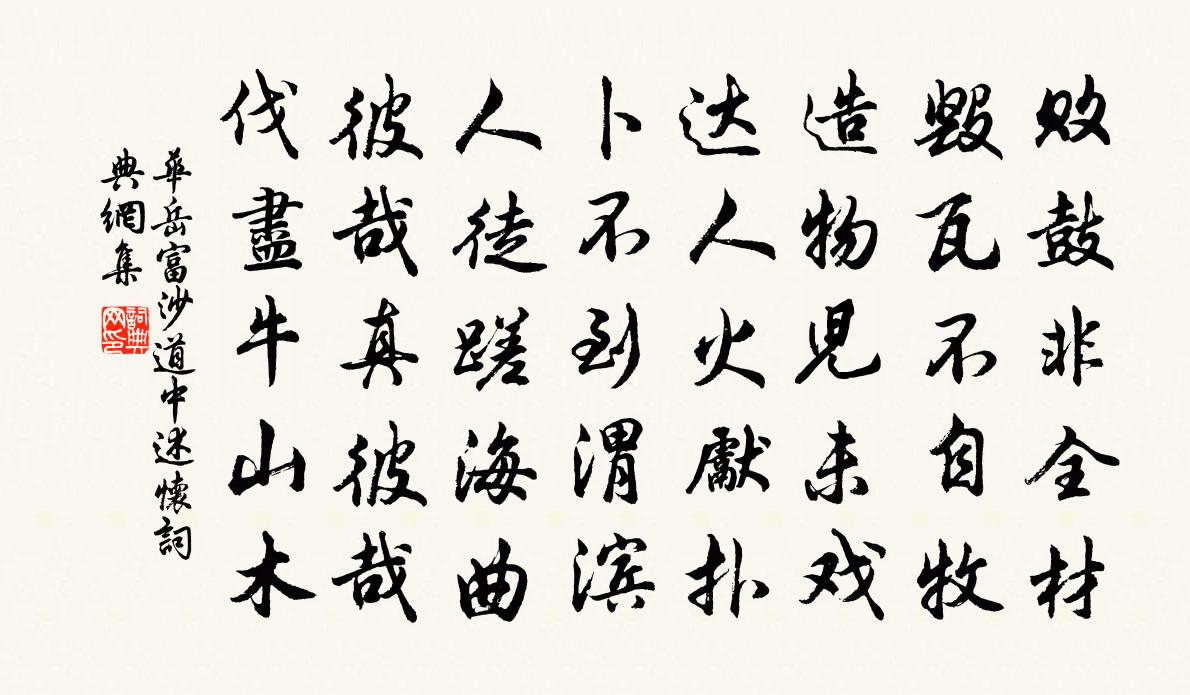 败鼓非全材
毀瓦不自牧
造物児未戏
达人火獻扑
卜不到渭滨
人徒蹉海曲
彼哉真彼哉
伐盡牛山木
華岳富沙道中述懷詞
典網集
詞典
网印